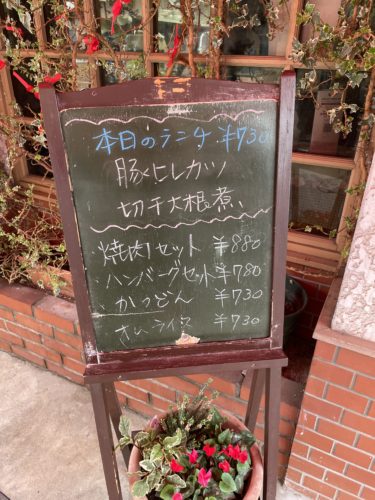 本日のランチ ¥730
豚ヒレカツ
切干大根煮
焼肉セット ¥880
ハンバーグセット ¥780
かつどん ¥730
オムライス ¥730